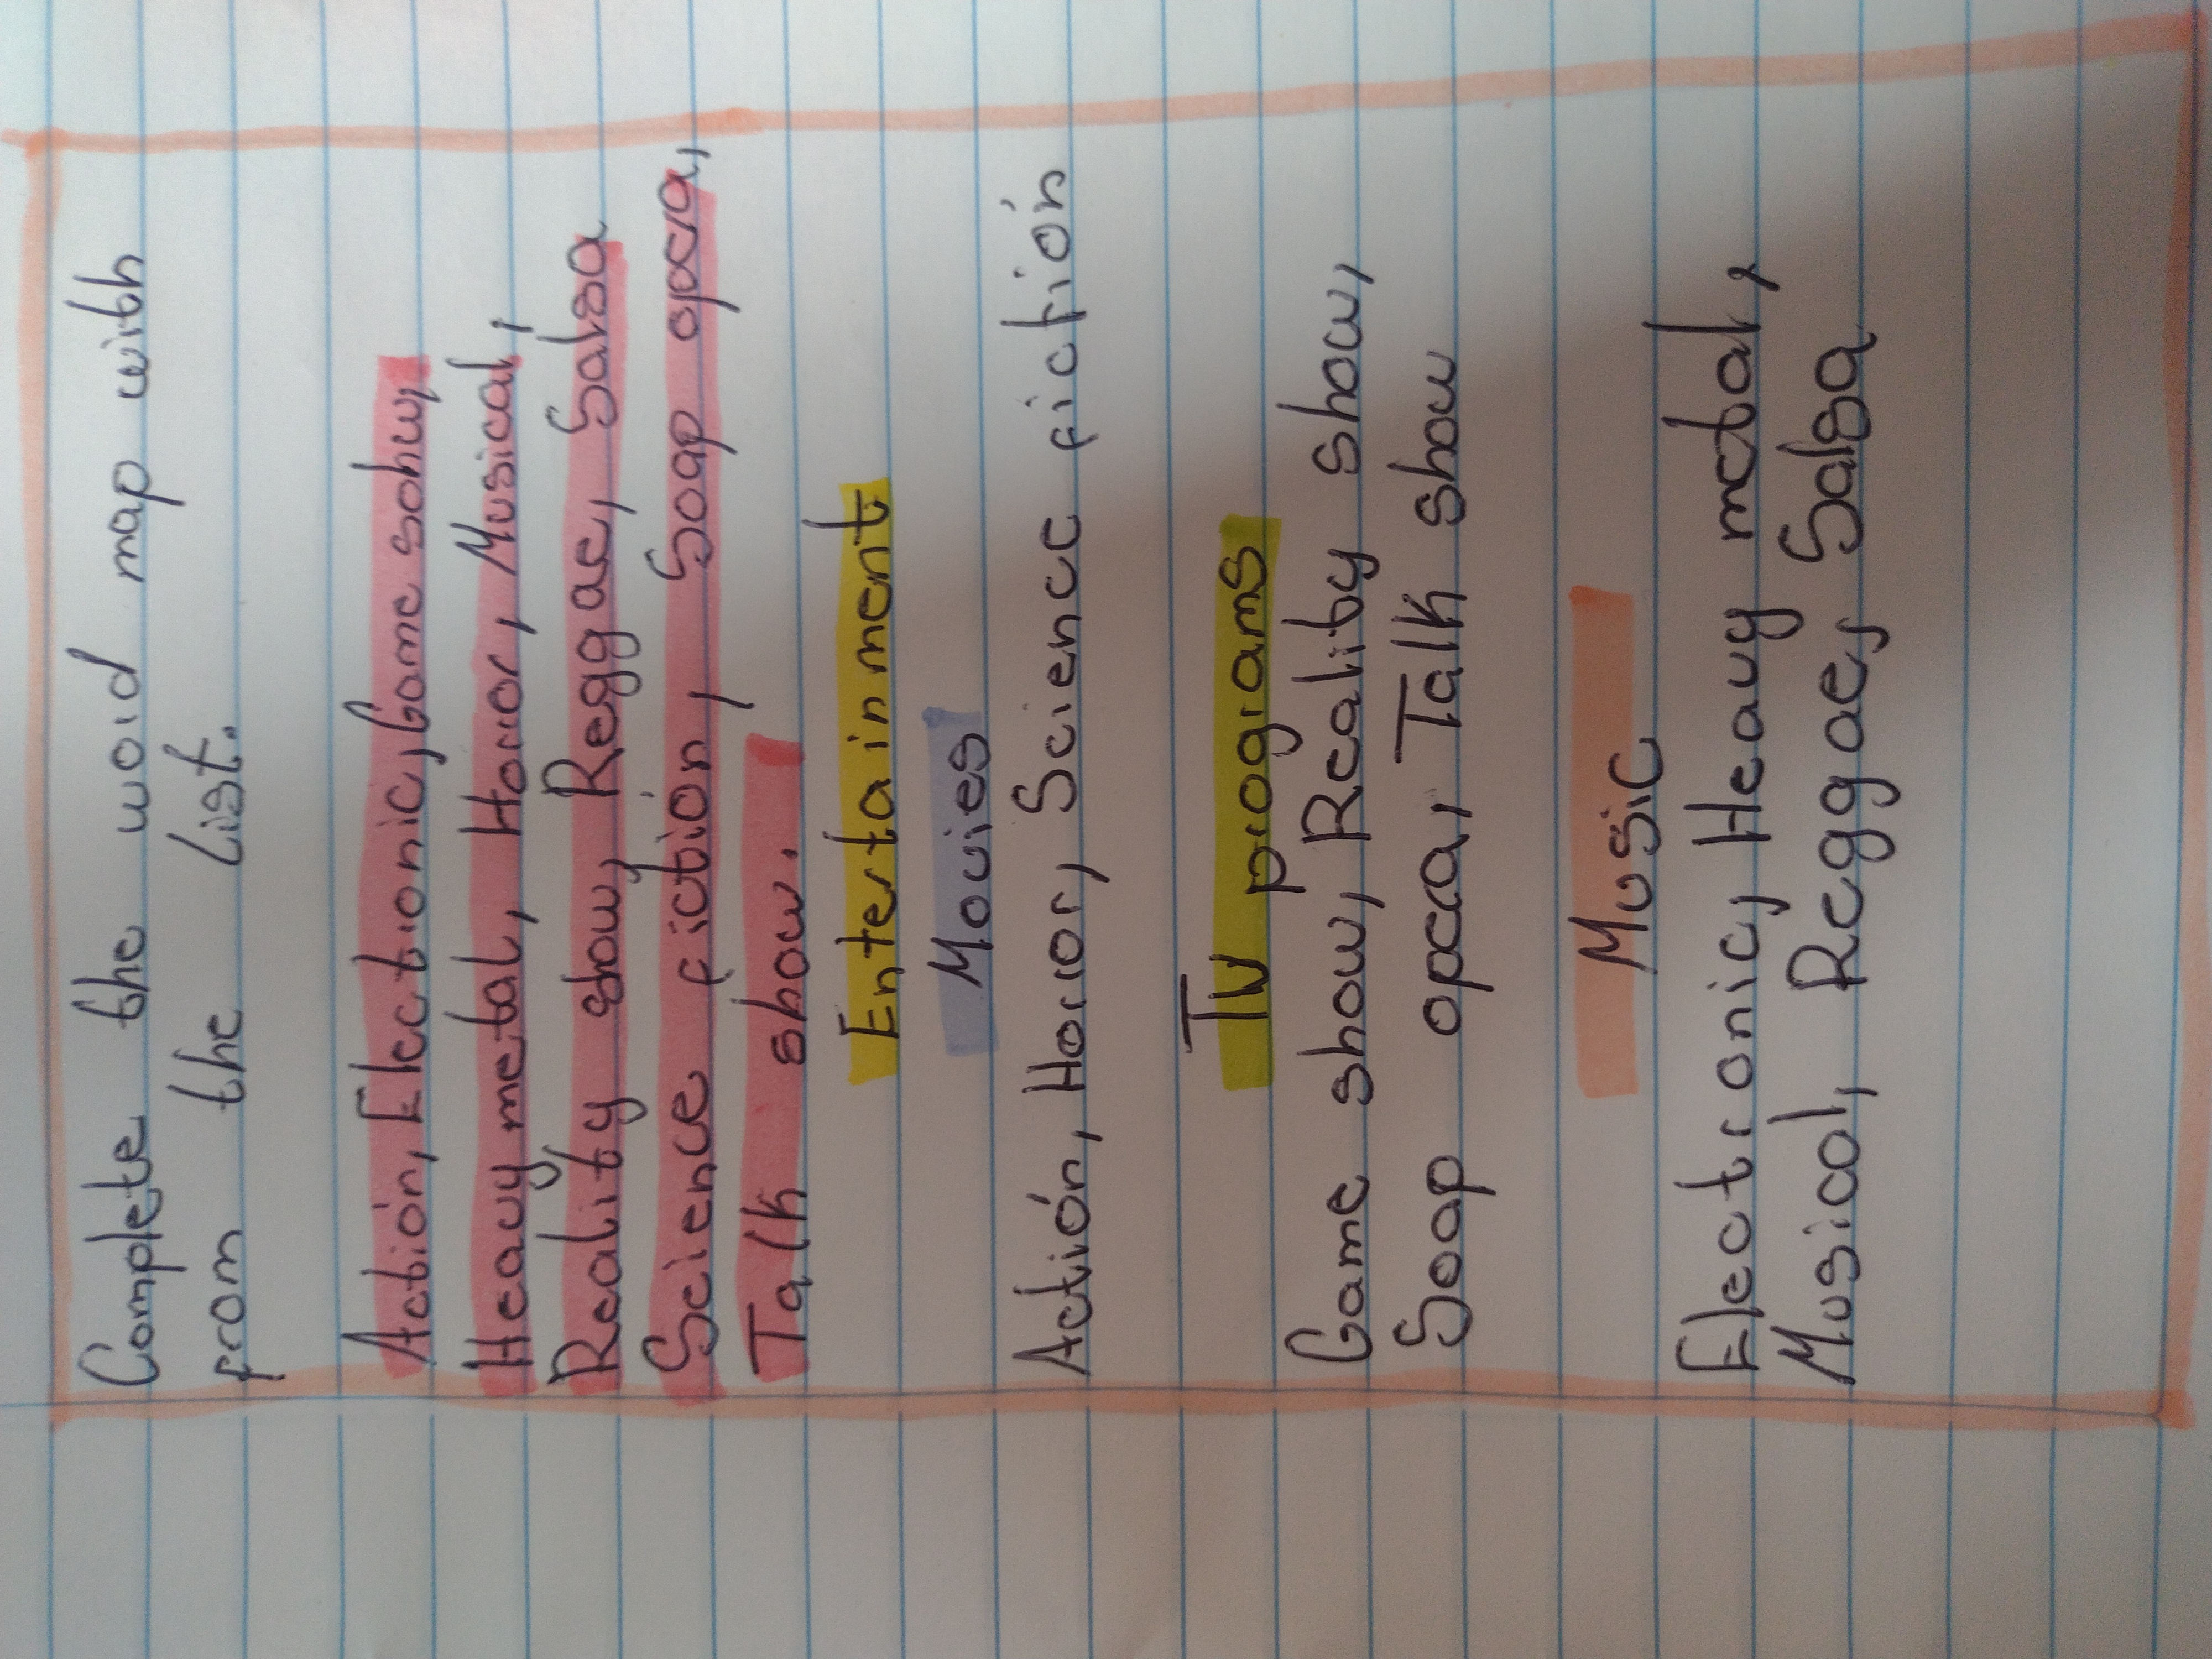 Complete the word map with
from the List.
Actión, Electronic, Game sohw,
Heavy metal, Horror, Musical,
Reality show, Reggae, Salsa
Science fiction, Soap opera,
Talk show.
Entertainment
Movies
Actión, Horror, Science fictión
TV programs
Game show, Reality show,
Soap opera, Talk show
Music
Electronic, Heavy metal,
Musical, Reggae, Salsa